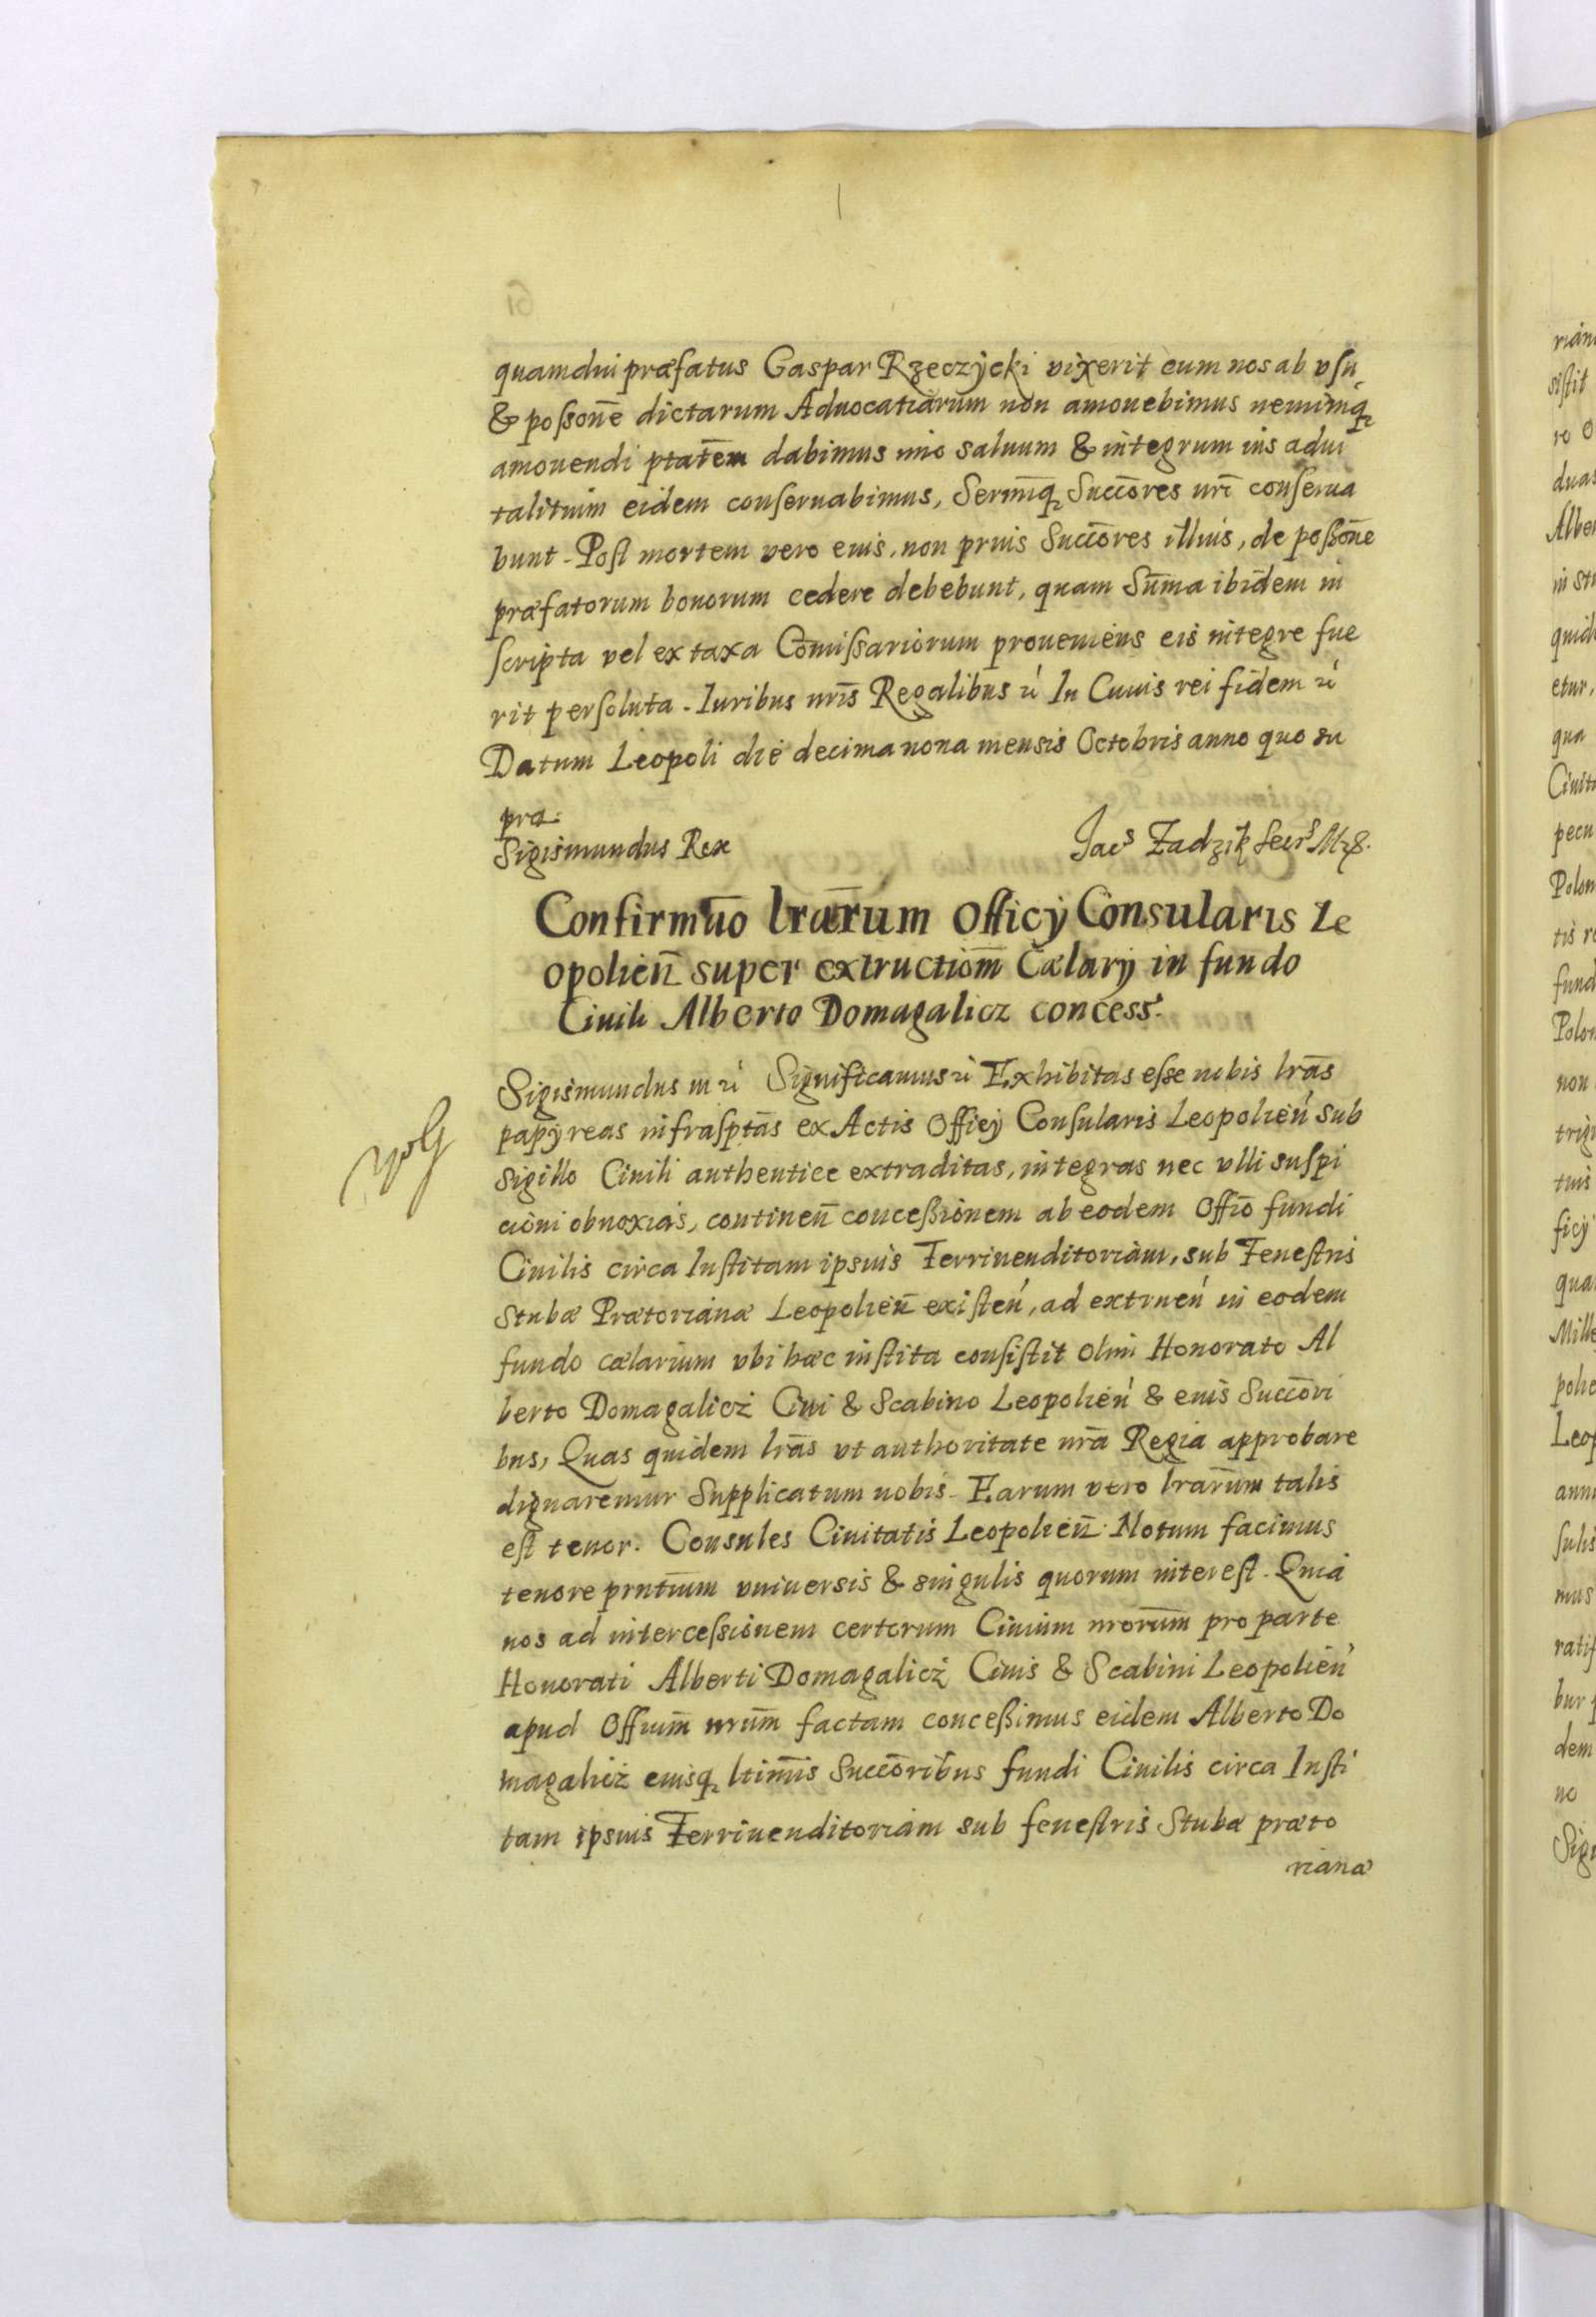 quamdiu præfatus Gaspar Rzeczÿcki vixerit eum nos ab vsu
& possone̅ dictarum Aduocatiarum non amouebimus neminiq̨
amouendi ptate̅m dabimus imo saluum & integrum ius adui
talituim eidem conseruabimus, Sermiq̨ Succo̅res nr̅i conserua
bunt. Post mortem vero euis, non prius Succo̅res illius, de possōne
præfatorum bonorum cedere debebunt, quam Su̅ma ibidem in
scripta vel ex taxa Co̅missariorum proueniens eis integre fue
rit persoluta. Iuribus nr̅is Regalibus ꝛć In Cuius rei fidem ꝛć
Datum Leopoli die decima nona mensis Octobris anno quo su
pra.
Sigismundus Rex Jacs Zadzik Secrs
Confirmu̅o lra̅rum Officÿ Consularis Le
opolien̅ super extructiom̅ Cælarÿ in fundo
Ciuili Alberto Domagalicz concess.
Sigismundus III ꝛć Significamus ꝛć Exhibitas esse nobis lr̅as
papÿreas infrasp̅tas ex Actis Officÿ Consularis Leopolień sub
Sigillo Ciuili authentice extraditas, integras nec vlli suspi
cioni obnoxias, continen̅ concessionem ab eodem Offi̅o fundi
Ciuilis circa Institam ipsius Ferriuenditoriam, sub Fenestris
Stubæ Prætorianæ Leopolien̅ existeń, ad extrueń in eodem
fundo cælarium vbi hæc instita consistit olim Honorato Al
berto Domagalicż Ciui & Scabino Leopolień & euis Succo̅ri
bus, Quas quidem lr̅as vt authoritate nr̅a Regia approbare
dignaremur Supplicatum nobis. Earum vero lra̅rum talis
est tenor. Consules Ciuitatis Leopolien̅. Notum facimus
tenore prntiu̅m vniuersis & singulis quorum interest. Quia
nos ad intercessionem certorum Ciuium nroru̅m pro parte
Honorati Alberti Domagalicż Ciuis & Scabini Leopolień
apud Offium̅ nrum̅ factam concessimus eidem Alberto Do
magalicż euisq̨ ltimi̅s Succo̅ribus fundi Ciuilis circa Insti
tam ipsius Ferriuenditoriam sub fenestris Stubæ præto
rianæ